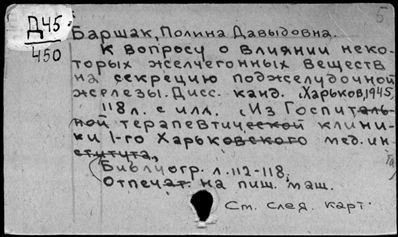 Д45
450
5
Баршак, Полина Давыдовна.
К вопросу о влиянии неко-
торых желчегонных веществ
на секрецию поджелудочной
железы. Дисс. канд. Харьков, 1945.
118 л. с илл. (Из Госпиталь-
ной терапевтической клини-
ки 1-го Харьковского мед. ин-
ститута)
Библиогр. л. 112-118.
Отпечат. на пиш. маш.
См. след. карт.